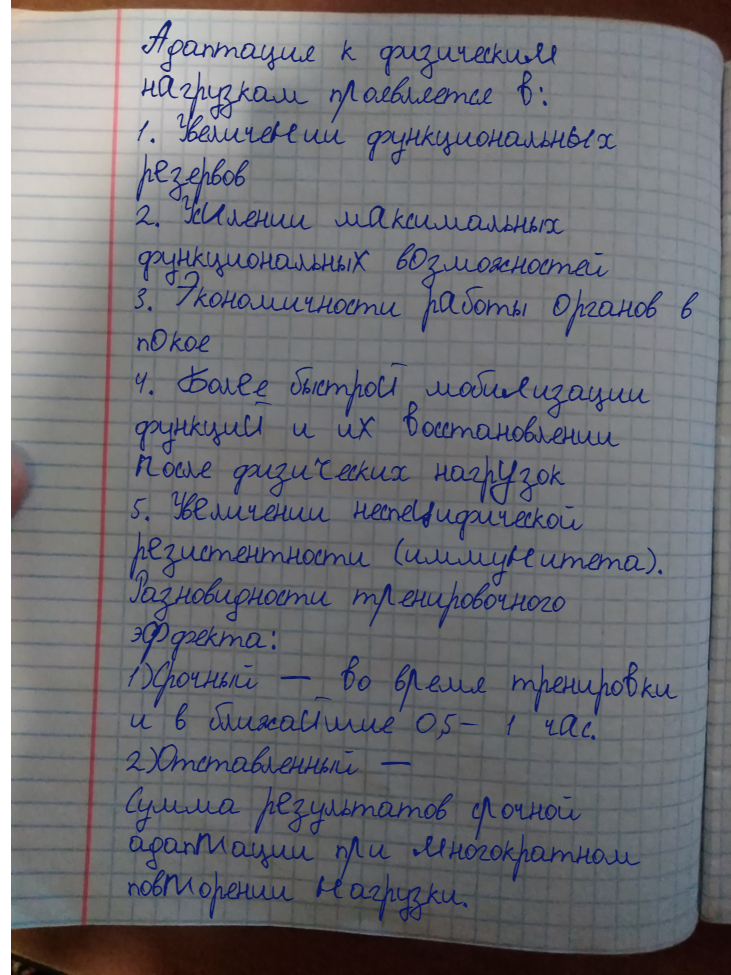 Адаптация к физическим
нагрузкам проявляется в:
1. Увеличении функциональных
резервов
2. Усилении максимальных
функциональных возможностей
3. Экономичности работы органов в
покое
4. Более быстрой мобилизации
функций и их восстановлении
после физических нагрузок
5. Увеличении неспецифической
резистентности (иммунитета).
Разновидности тренировочного
эффекта:
1) Срочный — во время тренировки
и в ближайшие 0,5 – 1 час.
2) Отставленный —
Сумма результатов срочной
адаптации при многократном
повторении нагрузки.